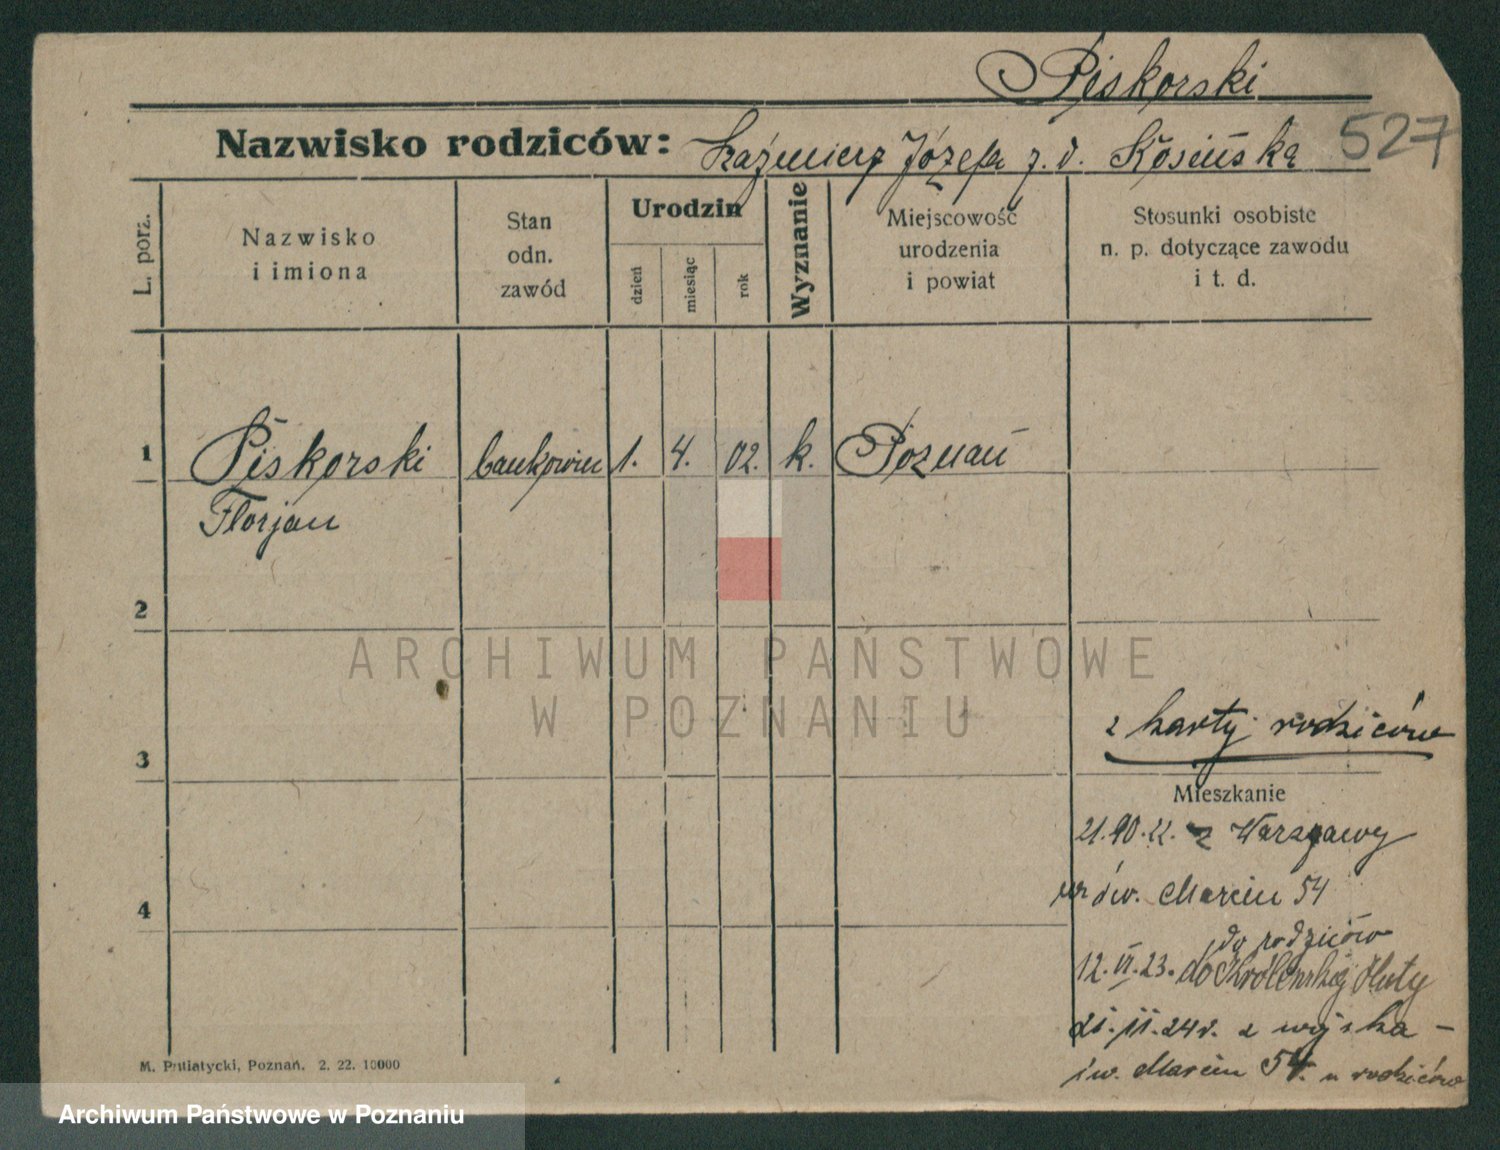 Piskorski
Nazwisko rodziców: Kaźmierz Józefa z. d. Kosińska 527
L. porz.
Nazwisko
i imiona
Stan
odn.
zawód
Urodzin
dzień
miesiąc
rok
Wyznanie
Miejscowość
urodzenia
i powiat
Stosunki osobiste
n. p. dotyczące zawodu
i t. d.
1 Piskorski bankowiec 1. 4. 02. k. Poznań
Florjan
2
ARCHIWUM PAŃSTWOWE
W POZNANIU
z karty rodziców
3
Mieszkanie
21.10.22. z Warszawy
św. Marcin 54
4
do rodziców
12.VI.23. do Królewskiej Huty
21.II.24r. z wojska –
św. Marcin 54. u rodziców
M. Putiatycki, Poznań. 2. 22. 10000
Archiwum Państwowe w Poznaniu